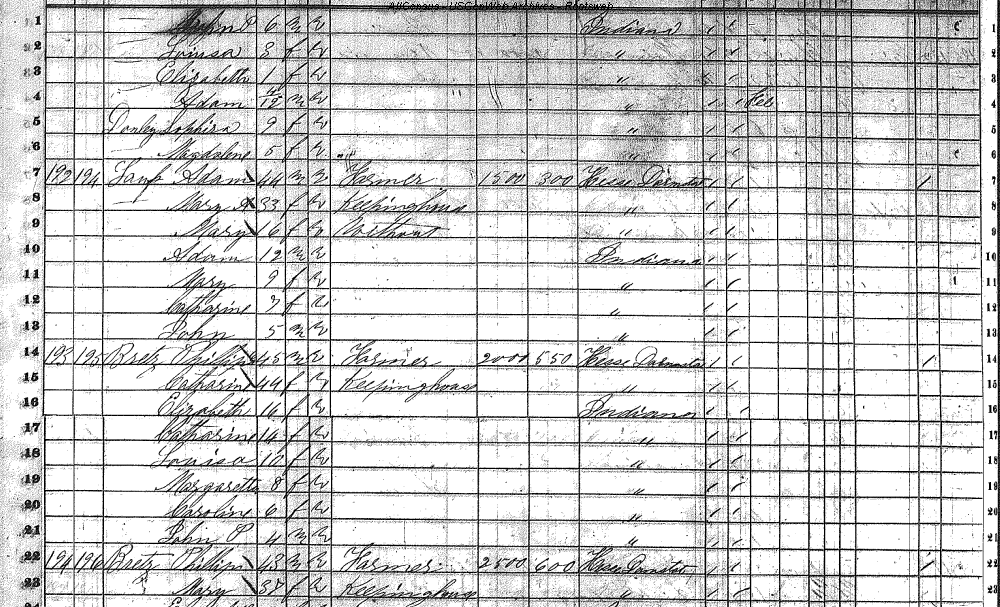 AllCensus - USGenWeb Archives -
1 John P 6 m W Indiana / / 1
2 Louisa 3 f W " / / 2
3 Elizabeth 1 f W " / / 3
4 Adam 4/12 m W " / / 4
5 Sophisa 9 f W " / / 5
6 Magdalene 5 f W " / / 6
7 192 194 Adam 44 m W Farmer 1500 300 Hesse Darmstat / / / 7
8 Mary 33 f W Keepinghouse " 8
9 Mary f W Without " / / 9
10 Adam 12 m W Indiana / / 10
11 Mary 9 f W " / / 11
12 Catharine 7 f W " / / 12
13 John 5 m W " / / 13
14 193 195 Bretz Phillip 45 m W Farmer 2000 550 Hesse Darmstat / / / 14
15 Catharin 44 f W Keepinghouse " / / 15
16 Elizabeth 16 f W Indiana / / 16
17 Catharine 14 f W " / / 17
18 Louisa 10 f W " / / 18
19 Margaretta 8 f W " / / 19
20 Caroline 6 f W " / / 20
21 John P 4 m W " / / 21
22 194 196 Bretz Phillip 43 m W Farmer 2500 600 Hesse Darmstat / / / 22
23 Mary 37 f W Keepinghouse " / / 23